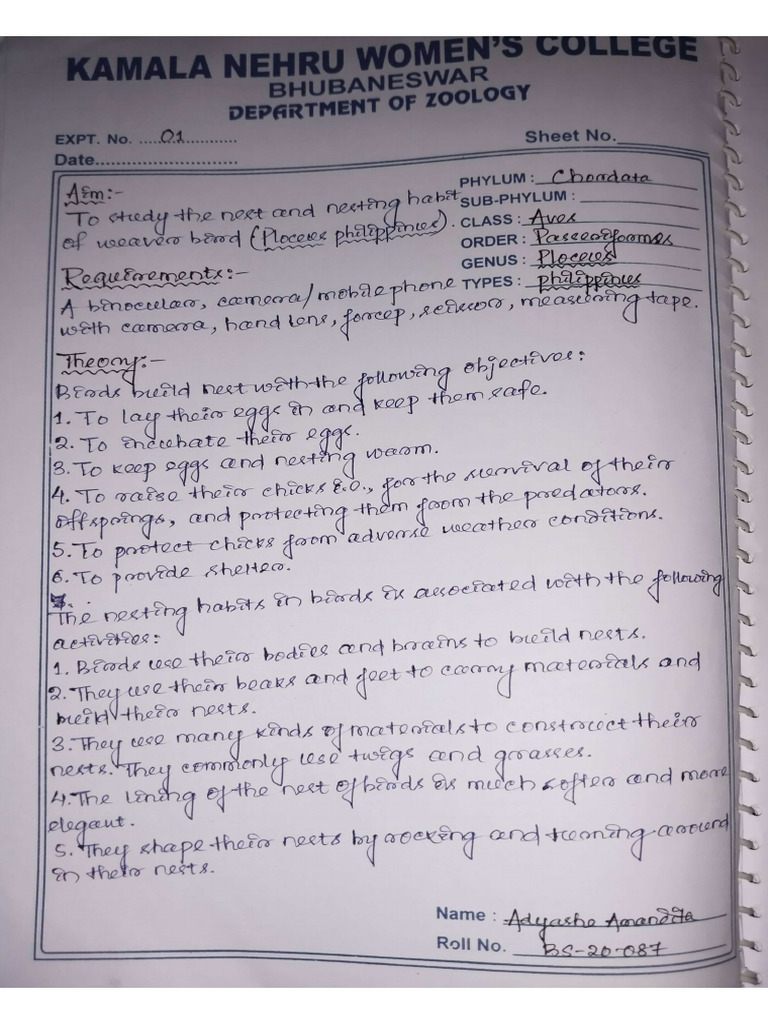 KAMALA NEHRU WOMEN'S COLLEGE
BHUBANESWAR
DEPARTMENT OF ZOOLOGY
EXPT. No. .....01...........
Sheet No.
Date..........................
PHYLUM : Chordata
SUB-PHYLUM :
CLASS : Aves
ORDER : Passeriformes
GENUS : Ploceus
TYPES : philippinus
Aim:-
To study the nest and nesting habit
of weaver bird (Ploceus philippinus).
Requirements:-
A binocular, camera/mobile phone
with camera, hand lens, forcep, scissor, measuring tape.
Theory:-
Birds build nest with the following objectives:
1. To lay their eggs in and keep them safe.
2. To incubate their eggs.
3. To keep eggs and nesting warm.
4. To raise their chicks i.e., for the survival of their
offsprings, and protecting them from the predators.
5. To protect chicks from adverse weather conditions.
6. To provide shelter.
The nesting habits in birds is associated with the following
activities:
1. Birds use their bodies and brains to build nests.
2. They use their beaks and feet to carry materials and
build their nests.
3. They use many kinds of materials to construct their
nests. They commonly use twigs and grasses.
4. The lining of the nest of birds is much softer and more
elegant.
5. They shape their nests by rocking and turning around
in their nests.
Name : Adyasha Anandita
Roll No. BS-20-087